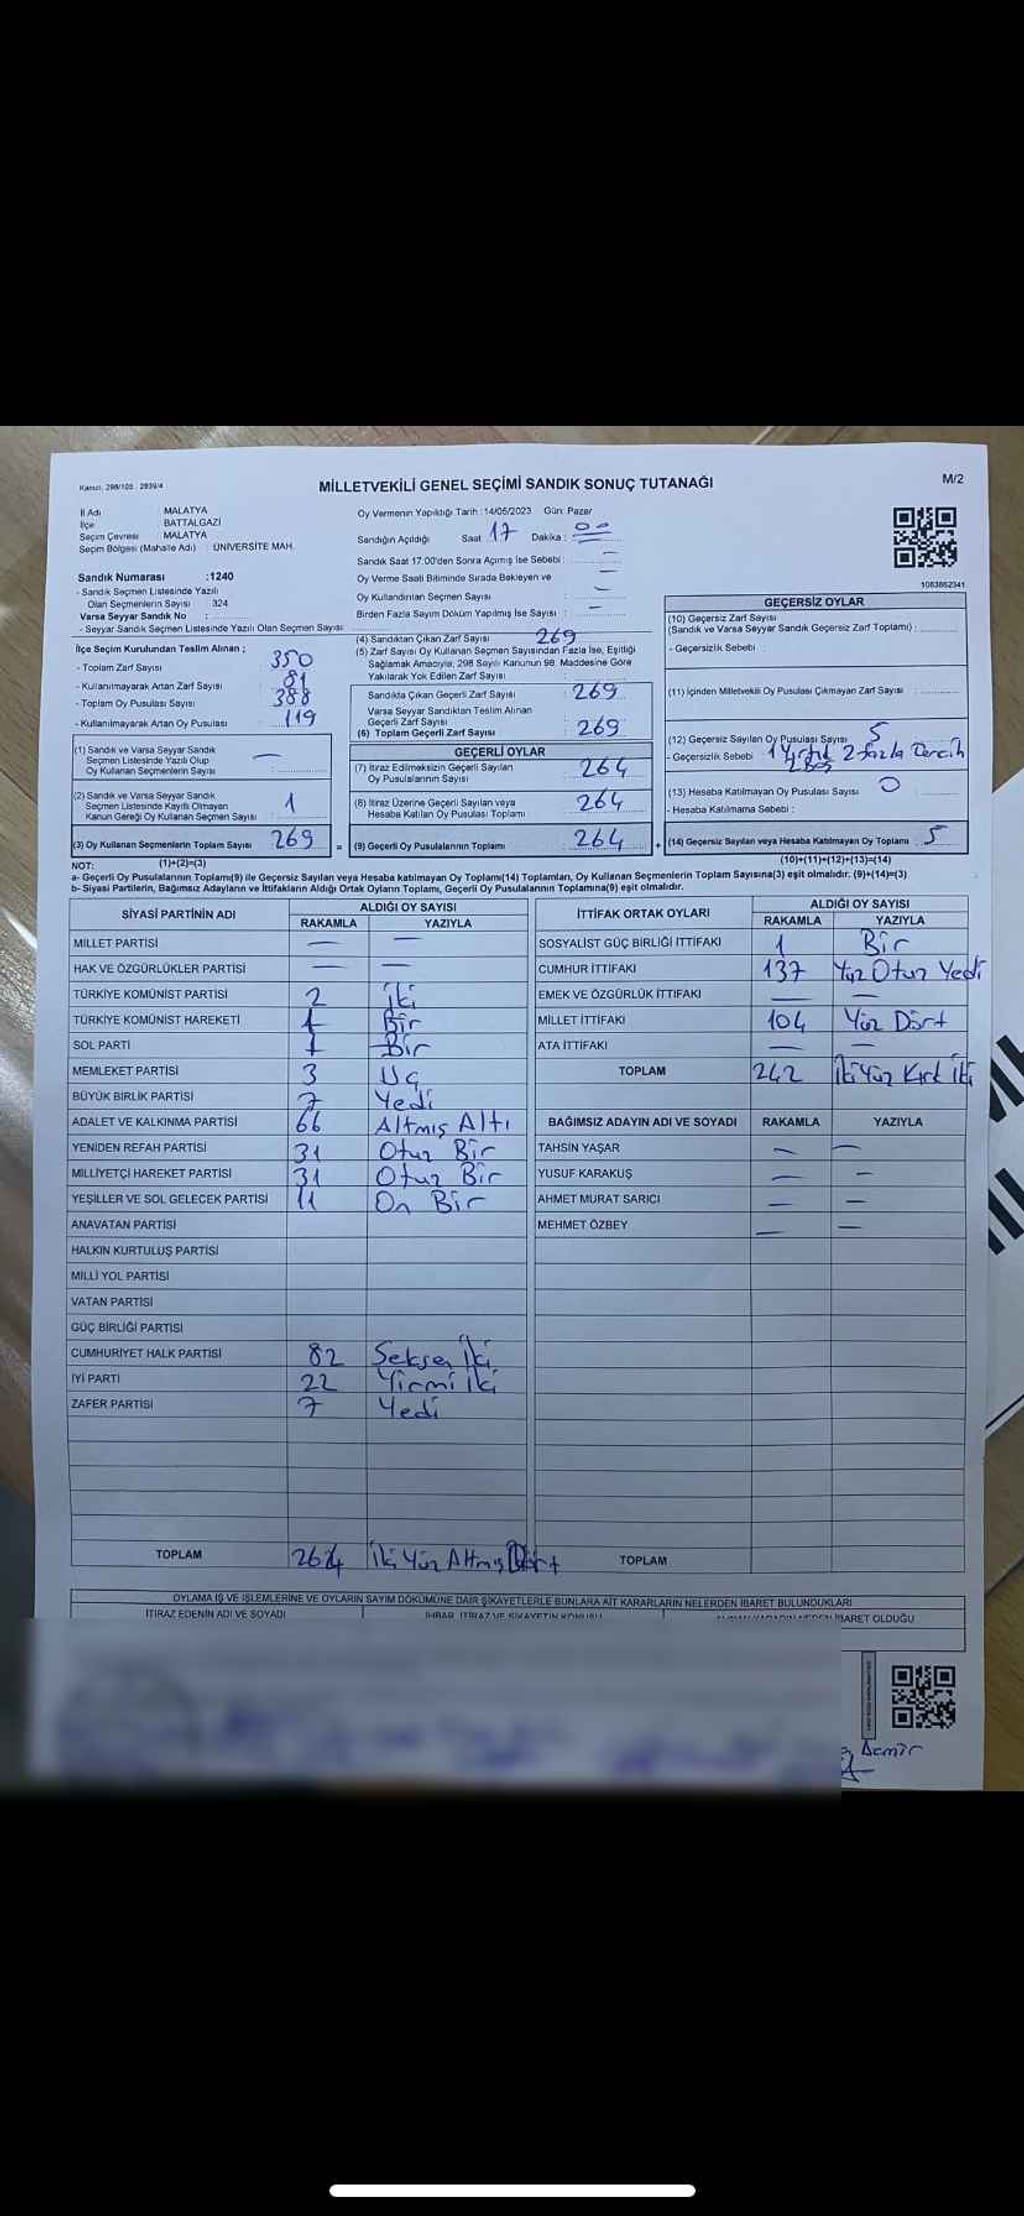 Kanun: 298/105 - 2839/4
MİLLETVEKİLİ GENEL SEÇİMİ SANDIK SONUÇ TUTANAĞI
M/2
İl Adı : MALATYA
İlçe : BATTALGAZİ
Seçim Çevresi : MALATYA
Seçim Bölgesi (Mahalle Adı) : ÜNİVERSİTE MAH.
Sandık Numarası :1240
- Sandık Seçmen Listesinde Yazılı
Olan Seçmenlerin Sayısı : 324
Varsa Seyyar Sandık No :
- Seyyar Sandık Seçmen Listesinde Yazılı Olan Seçmen Sayısı:
Oy Vermenin Yapıldığı Tarih :14/05/2023 Gün: Pazar
Sandığın Açıldığı Saat 17 Dakika : 00
Sandık Saat 17:00'den Sonra Açımış İse Sebebi : —
Oy Verme Saati Bitiminde Sırada Bekleyen ve
Oy Kullandırılan Seçmen Sayısı : —
Birden Fazla Sayım Döküm Yapılmış İse Sayısı : —
1083862341
İlçe Seçim Kurulundan Teslim Alınan ;
- Toplam Zarf Sayısı : 350
- Kullanılmayarak Artan Zarf Sayısı : 81
- Toplam Oy Pusulası Sayısı : 388
- Kullanılmayarak Artan Oy Pusulası : 119
(1) Sandık ve Varsa Seyyar Sandık
Seçmen Listesinde Yazılı Olup
Oy Kullanan Seçmenlerin Sayısı : —
(2) Sandık ve Varsa Seyyar Sandık
Seçmen Listesinde Kayıtlı Olmayan
Kanun Gereği Oy Kullanan Seçmen Sayısı : 1
(3) Oy Kullanan Seçmenlerin Toplam Sayısı : 269 =
(4) Sandıktan Çıkan Zarf Sayısı : 269
(5) Zarf Sayısı Oy Kullanan Seçmen Sayısından Fazla İse, Eşitliği
Sağlamak Amacıyla, 298 Sayılı Kanunun 98. Maddesine Göre
Yakılarak Yok Edilen Zarf Sayısı :
Sandıkta Çıkan Geçerli Zarf Sayısı : 269
Varsa Seyyar Sandıktan Teslim Alınan
Geçerli Zarf Sayısı :
(6) Toplam Geçerli Zarf Sayısı : 269
GEÇERLİ OYLAR
(7) İtiraz Edilmeksizin Geçerli Sayılan
Oy Pusulalarının Sayısı : 264
(8) İtiraz Üzerine Geçerli Sayılan veya
Hesaba Katılan Oy Pusulası Toplamı : 264
(9) Geçerli Oy Pusulalarının Toplamı : 264 +
GEÇERSİZ OYLAR
(10) Geçersiz Zarf Sayısı
(Sandık ve Varsa Seyyar Sandık Geçersiz Zarf Toplamı) :
- Geçersizlik Sebebi :
(11) İçinden Milletvekili Oy Pusulası Çıkmayan Zarf Sayısı :
(12) Geçersiz Sayılan Oy Pusulası Sayısı : 5
- Geçersizlik Sebebi : 1 Yırtık 2 fazla Tercih
2 Boş
(13) Hesaba Katılmayan Oy Pusulası Sayısı : 0
- Hesaba Katılmama Sebebi :
(14) Geçersiz Sayılan veya Hesaba Katılmayan Oy Toplamı : 5
NOT: (1)+(2)=(3)
(10)+(11)+(12)+(13)=(14)
a- Geçerli Oy Pusulalarının Toplamı(9) ile Geçersiz Sayılan veya Hesaba katılmayan Oy Toplamı(14) Toplamları, Oy Kullanan Seçmenlerin Toplam Sayısına(3) eşit olmalıdır. (9)+(14)=(3)
b- Siyasi Partilerin, Bağımsız Adayların ve İttifakların Aldığı Ortak Oyların Toplamı, Geçerli Oy Pusulalarının Toplamına(9) eşit olmalıdır.
SİYASİ PARTİNİN ADI
ALDIĞI OY SAYISI
RAKAMLA YAZIYLA
MİLLET PARTİSİ — —
HAK VE ÖZGÜRLÜKLER PARTİSİ — —
TÜRKİYE KOMÜNİST PARTİSİ 2 iki
TÜRKİYE KOMÜNİST HAREKETİ 1 Bir
SOL PARTİ 1 Bir
MEMLEKET PARTİSİ 3 Üç
BÜYÜK BİRLİK PARTİSİ 7 Yedi
ADALET VE KALKINMA PARTİSİ 66 Altmış Altı
YENİDEN REFAH PARTİSİ 31 Otuz Bir
MİLLİYETÇİ HAREKET PARTİSİ 31 Otuz Bir
YEŞİLLER VE SOL GELECEK PARTİSİ 11 On Bir
ANAVATAN PARTİSİ
HALKIN KURTULUŞ PARTİSİ
MİLLİ YOL PARTİSİ
VATAN PARTİSİ
GÜÇ BİRLİĞİ PARTİSİ
CUMHURİYET HALK PARTİSİ 82 Seksen İki
İYİ PARTİ 22 Yirmi İki
ZAFER PARTİSİ 7 Yedi
TOPLAM 264 İki Yüz Altmış Dört
İTTİFAK ORTAK OYLARI
ALDIĞI OY SAYISI
RAKAMLA YAZIYLA
SOSYALİST GÜÇ BİRLİĞİ İTTİFAKI 1 Bir
CUMHUR İTTİFAKI 137 Yüz Otuz Yedi
EMEK VE ÖZGÜRLÜK İTTİFAKI — —
MİLLET İTTİFAKI 104 Yüz Dört
ATA İTTİFAKI — —
TOPLAM 242 İki Yüz Kırk İki
BAĞIMSIZ ADAYIN ADI VE SOYADI RAKAMLA YAZIYLA
TAHSİN YAŞAR — —
YUSUF KARAKUŞ — —
AHMET MURAT SARICI — —
MEHMET ÖZBEY — —
TOPLAM
OYLAMA İŞ VE İŞLEMLERİNE VE OYLARIN SAYIM DÖKÜMÜNE DAİR ŞİKAYETLERLE BUNLARA AİT KARARLARIN NELERDEN İBARET BULUNDUKLARI
İTİRAZ EDENİN ADI VE SOYADI
İHBAR, İTİRAZ VE ŞİKAYETİN KONUSU
İBARET OLDUĞU
Demir